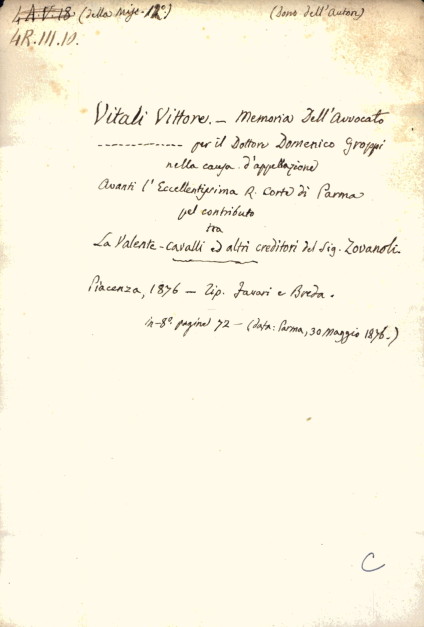 4.A.V.18 (della Misc. 12ª) (Dono dell'Autore)
4R.III.10.
Vitali Vittore. — Memoria Dell'Avvocato
per il Dottore Domenico Groppi
nella causa d'appellazione
avanti l'Eccellentissima R. Corte di Parma
pel contributo
tra
La Valente-Cavalli ed altri creditori del Sig. Zovanoli.
Piacenza, 1876 — Tip. Favari e Breda.
in-8º pagine 72 — (data: Parma, 30 Maggio 1876.)
C